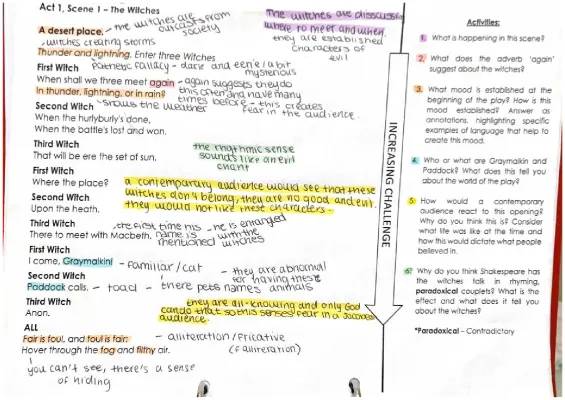 Act 1, Scene 1 – The Witches
- the witches are outcasts from society
The witches are disscusse
where to meet and when.
they are established
characters of
evil
A desert place.
witches creating storms
Thunder and lightning. Enter three Witches
First Witch
Pathetic fallacy - dark and eerie / a bit
mysterious
When shall we three meet again
- again suggests they do
this often and have many
times before - this creates
fear in the audience.
In thunder, lightning, or in rain?
shows the weather
Second Witch
When the hurlyburly's done,
When the battle's lost and won.
Third Witch
That will be ere the set of sun.
the rhythmic sense
sounds like an evil
chant
First Witch
Where the place?
Second Witch
Upon the heath.
a contemporary audience would see that these
witches don't belong, they are no good and evil.
they would not like these characters.
Third Witch
There to meet with Macbeth.
the first time his
name is
mentioned
- he is entangled
with the
witches
First Witch
I come, Graymalkin!
- familiar / cat
- they are abnormal
for having these
animals
Second Witch
Paddock calls.
- toad - there pets names
Third Witch
Anon.
they are all-knowing and only God
can do that so this senses fear in a Jacobean
audience.
ALL
Fair is foul, and foul is fair:
- aliteration / Fricative
(f aliteration)
Hover through the fog and filthy air.
you can't see, there's a sense
of hiding
INCREASING CHALLENGE
Activities:
1. What is happening in this scene?
2. What does the adverb 'again'
suggest about the witches?
3. What mood is established at the
beginning of the play? How is this
mood established? Answer as
annotations, highlighting specific
examples of language that help to
create this mood.
4. Who or what are Graymalkin and
Paddock? What does this tell you
about the world of the play?
5. How would a contemporary
audience react to this opening?
Why do you think this is? Consider
what life was like at the time and
how this would dictate what people
believed in.
6? Why do you think Shakespeare has
the witches talk in rhyming,
paradoxical couplets? What is the
effect and what does it tell you
about the witches?
*Paradoxical – Contradictory